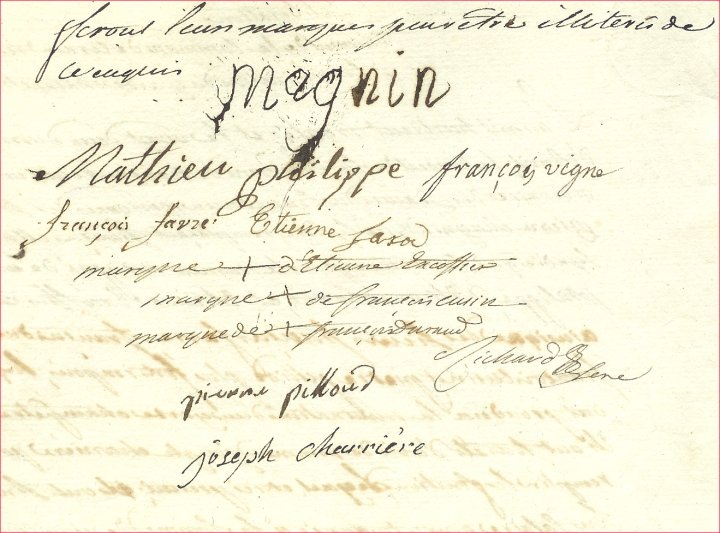 feront leurs marques pour être illiterés de
ce enquis
Magnin
Mathieu philippe françois vigne
françois favre Etienne
marque + d'Etienne Encoffier
marque + de françois cusin
marque de + françois Durand
Richard
pierre pilloud
joseph charrière